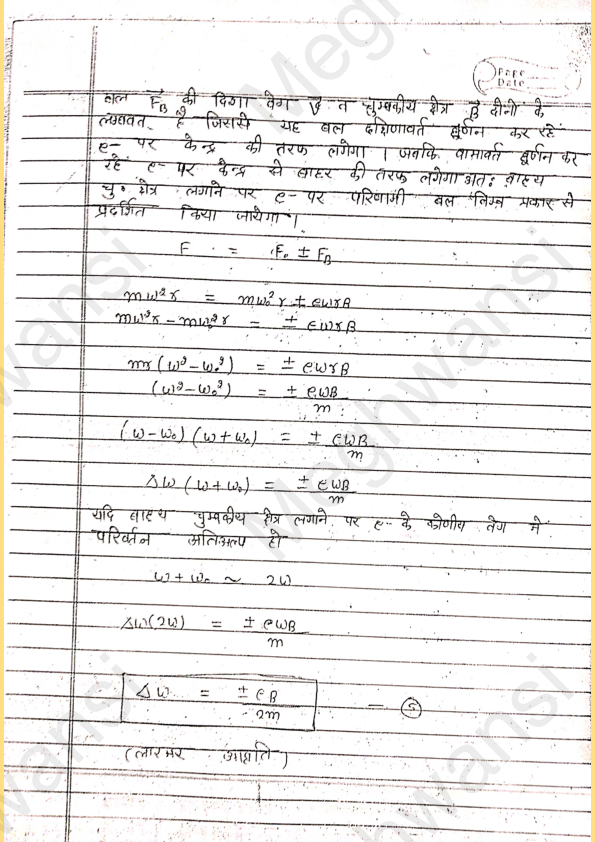 Page
Date
बल F⃗B की दिशा वेग V⃗ व चुम्बकीय क्षेत्र B⃗ दोनों के
लम्बवत् है जिससे यह बल दक्षिणावर्त घूर्णन कर रहे
e- पर केन्द्र की तरफ लगेगा । जबकि वामावर्त घूर्णन कर
रहे e- पर केन्द्र से बाहर की तरफ लगेगा अतः बाह्य
चु॰ क्षेत्र लगाने पर e- पर परिणामी बल निम्न प्रकार से
प्रदर्शित किया जायेगा ।
F = F₀ ± FB
mω²r = mω₀²r ± eωrB
mω²r - mω₀²r = ± eωrB
mr(ω² - ω₀²) = ± eωrB
(ω² - ω₀²) = ± eωB/m
(ω - ω₀) (ω + ω₀) = ± eωB/m
Δω (ω + ω₀) = ± eωB/m
यदि बाह्य चुम्बकीय क्षेत्र लगाने पर e- के कोणीय वेग में
परिवर्तन अतिअल्प हो
ω + ω₀ ~ 2ω
Δω(2ω) = ± eωB/m
Δω = ± eB/2m — ⑤
(लारमर आवृति)
Meghwansi
Meghwansi